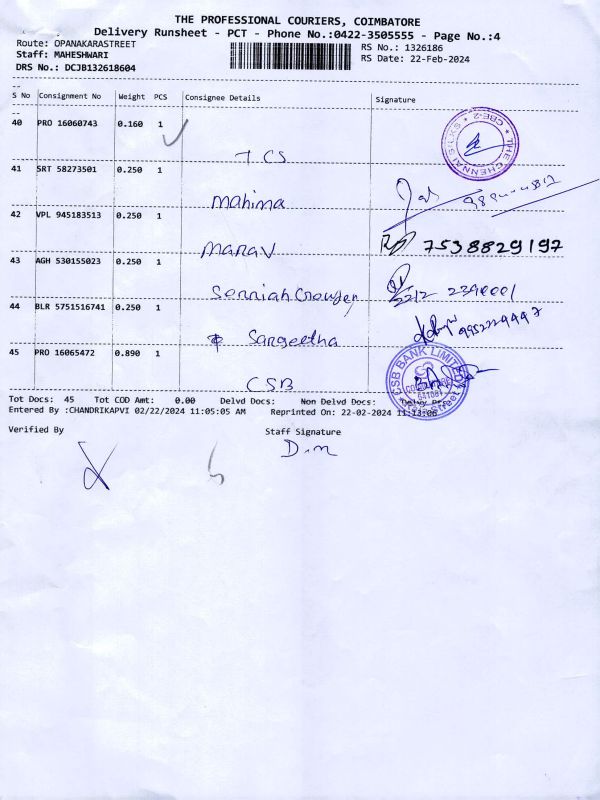 THE PROFESSIONAL COURIERS, COIMBATORE
Delivery Runsheet - PCT - Phone No.:0422-3505555 - Page No.:4
Route: OPANAKARASTREET RS No.: 1326186
Staff: MAHESHWARI RS Date: 22-Feb-2024
DRS No.: DCJB132618604
S No Consignment No Weight PCS Consignee Details Signature
40 PRO 16060743 0.160 1
TCS
THE CHENNAI SILKS * CBE-2 *
41 SRT 58273501 0.250 1
Mahima
42 VPL 945183513 0.250 1
Manav 7538829197
43 AGH 530155023 0.250 1
44 BLR 5751516741 0.250 1
Sangeetha
45 PRO 16065472 0.890 1
CSB
CSB BANK LIMITED
Tot Docs: 45 Tot COD Amt: 0.00 Delvd Docs: Non Delvd Docs:
Entered By :CHANDRIKAPVI 02/22/2024 11:05:05 AM Reprinted On: 22-02-2024 11:13:06
Verified By Staff Signature